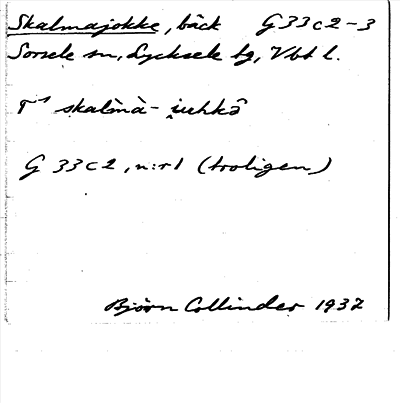 Skalmajokke, bäck G 33 c 2-3
Sorsele sn, Lycksele tg, Vbt l.
skalmà-
G 33 c 2, n:r 1 (troligen)
Björn Collinder 1937